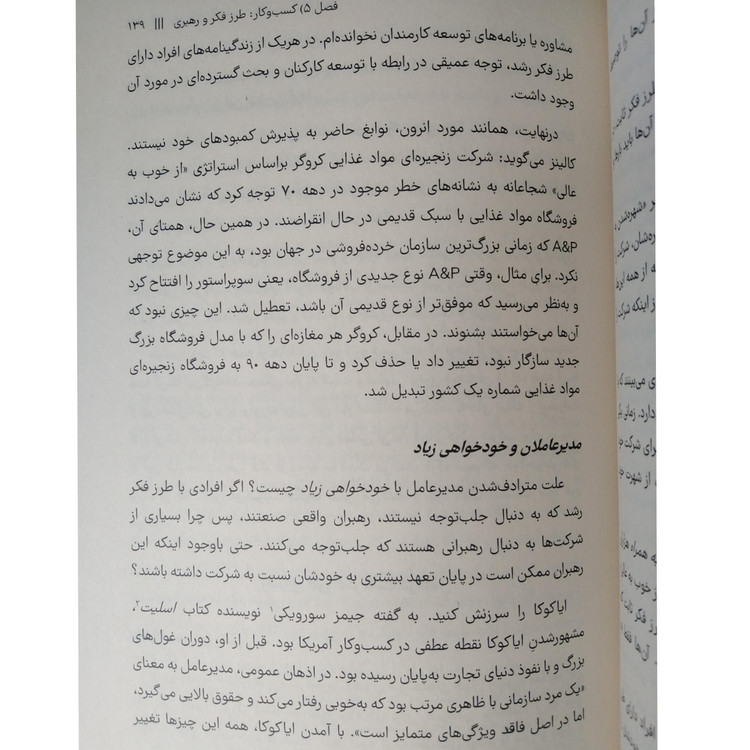 فصل ۵) کسب‌وکار: طرز فکر و رهبری ||| ۱۳۹
مشاوره یا برنامه‌های توسعه کارمندان نخوانده‌ام. در هریک از زندگینامه‌های افراد دارای
طرز فکر رشد، توجه عمیقی در رابطه با توسعه کارکنان و بحث گسترده‌ای در مورد آن
وجود داشت.
درنهایت، همانند مورد انرون، نوابغ حاضر به پذیرش کمبودهای خود نیستند.
کالینز می‌گوید: شرکت زنجیره‌ای مواد غذایی کروگر براساس استراتژی «از خوب به
عالی» شجاعانه به نشانه‌های خطر موجود در دهه ۷۰ توجه کرد که نشان می‌دادند
فروشگاه مواد غذایی با سبک قدیمی در حال انقراضند. در همین حال، همتای آن،
A&P که زمانی بزرگ‌ترین سازمان خرده‌فروشی در جهان بود، به این موضوع توجهی
نکرد. برای مثال، وقتی A&P نوع جدیدی از فروشگاه، یعنی سوپراستور را افتتاح کرد
و به‌نظر می‌رسید که موفق‌تر از نوع قدیمی آن باشد، تعطیل شد. این چیزی نبود که
آن‌ها می‌خواستند بشنوند. در مقابل، کروگر هر مغازه‌ای را که با مدل فروشگاه بزرگ
جدید سازگار نبود، تغییر داد یا حذف کرد و تا پایان دهه ۹۰ به فروشگاه زنجیره‌ای
مواد غذایی شماره یک کشور تبدیل شد.
مدیرعاملان و خودخواهی زیاد
علت مترادف‌شدن مدیرعامل با خودخواهی زیاد چیست؟ اگر افرادی با طرز فکر
رشد که به دنبال جلب‌توجه نیستند، رهبران واقعی صنعتند، پس چرا بسیاری از
شرکت‌ها به دنبال رهبرانی هستند که جلب‌توجه می‌کنند. حتی باوجود اینکه این
رهبران ممکن است در پایان تعهد بیشتری به خودشان نسبت به شرکت داشته باشند؟
ایاکوکا را سرزنش کنید. به گفته جیمز سورویکی۱ نویسنده کتاب اسلیت۲،
مشهورشدنِ ایاکوکا نقطه عطفی در کسب‌وکار آمریکا بود. قبل از او، دوران غول‌های
بزرگ و با نفوذ دنیای تجارت به‌پایان رسیده بود. در اذهان عمومی، مدیرعامل به معنای
«یک مرد سازمانی با ظاهری مرتب بود که به‌خوبی رفتار می‌کند و حقوق بالایی می‌گیرد،
اما در اصل فاقد ویژگی‌های متمایز است». با آمدن ایاکوکا، همه این چیزها تغییر